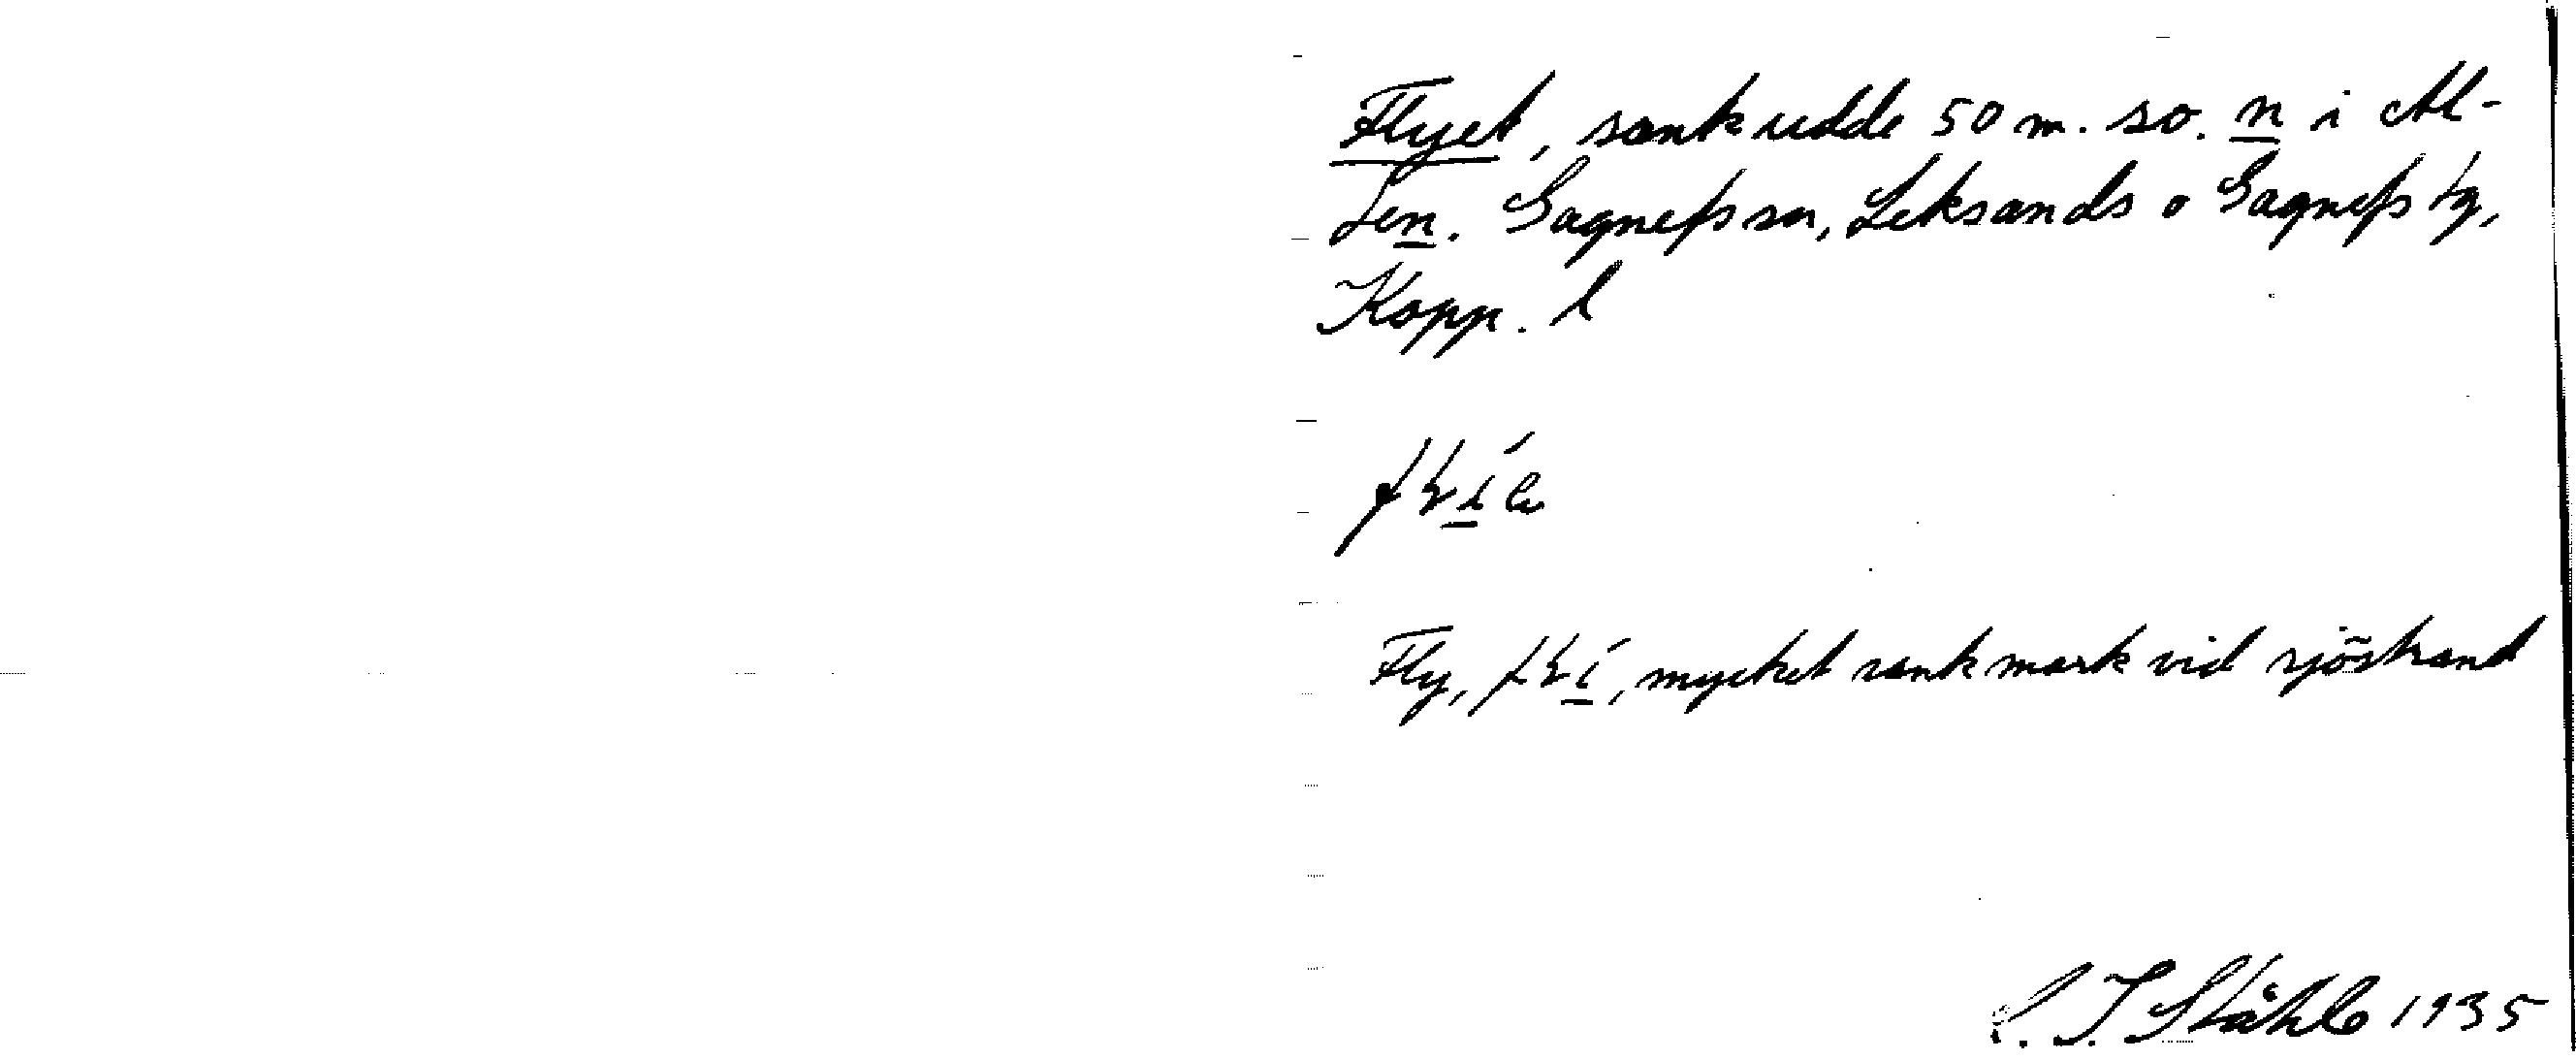 Flyet, sank udde 50 m. so. n i Al-
sen. Gagnefs sn, Leksands o Gagnefs tg,
Kopp. l
Fly, mycket sank mark vid sjöstrand
C. I. Ståhle 1935